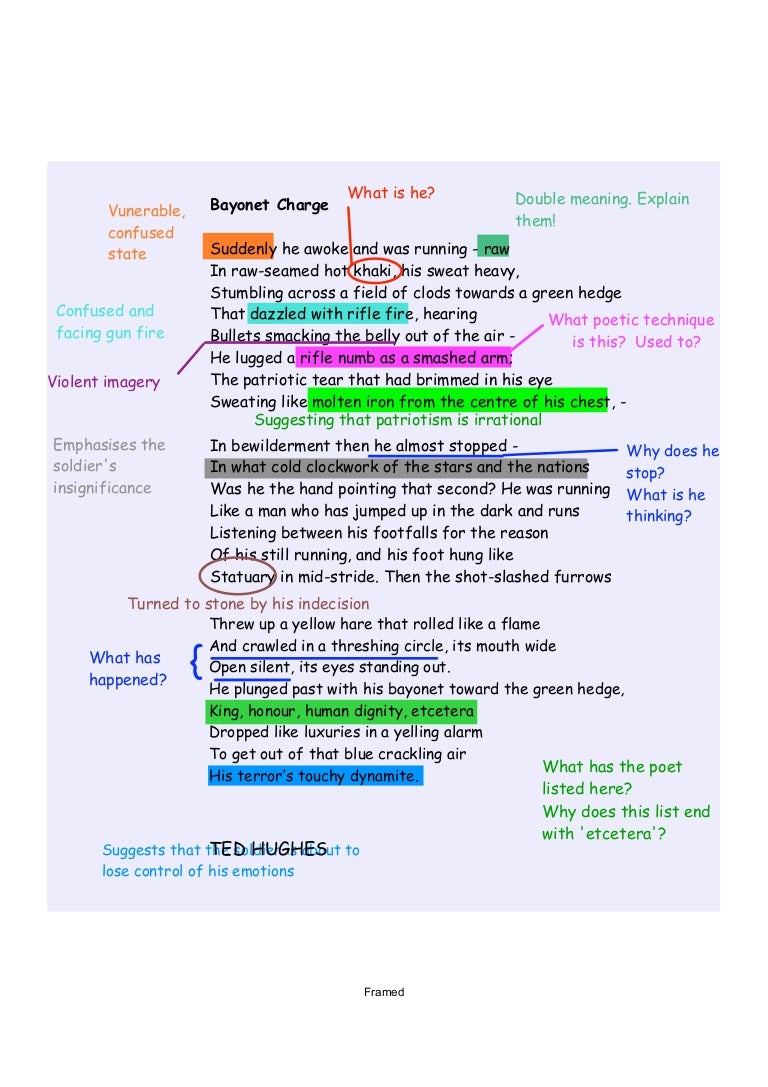 What is he?
Bayonet Charge
Double meaning. Explain
them!
Vunerable,
confused
state
Suddenly he awoke and was running - raw
In raw-seamed hot khaki, his sweat heavy,
Stumbling across a field of clods towards a green hedge
That dazzled with rifle fire, hearing
Confused and
facing gun fire
Bullets smacking the belly out of the air -
What poetic technique
is this? Used to?
He lugged a rifle numb as a smashed arm;
The patriotic tear that had brimmed in his eye
Violent imagery
Sweating like molten iron from the centre of his chest, -
Suggesting that patriotism is irrational
Emphasises the
soldier's
insignificance
In bewilderment then he almost stopped -
In what cold clockwork of the stars and the nations
Was he the hand pointing that second? He was running
Like a man who has jumped up in the dark and runs
Why does he
stop?
What is he
thinking?
Listening between his footfalls for the reason
Of his still running, and his foot hung like
Statuary in mid-stride. Then the shot-slashed furrows
Turned to stone by his indecision
Threw up a yellow hare that rolled like a flame
And crawled in a threshing circle, its mouth wide
What has
happened?
Open silent, its eyes standing out.
He plunged past with his bayonet toward the green hedge,
King, honour, human dignity, etcetera
Dropped like luxuries in a yelling alarm
To get out of that blue crackling air
His terror's touchy dynamite.
What has the poet
listed here?
Why does this list end
with 'etcetera'?
TED HUGHES
Suggests that the soldier is about to
lose control of his emotions
Framed